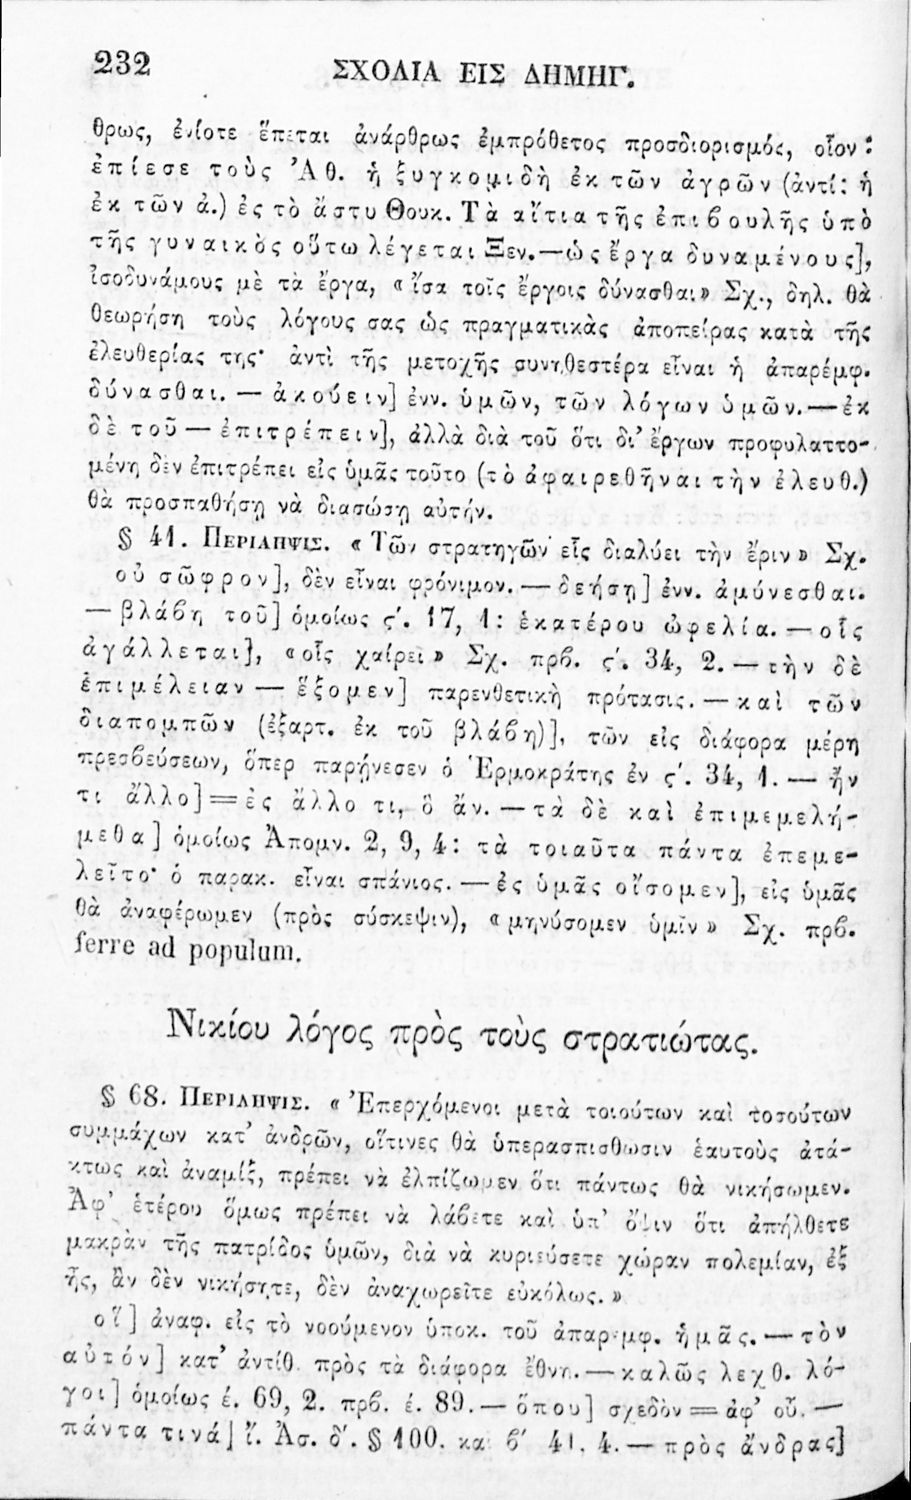 232 ΣΧΟΛΙΑ ΕΙΣ ΔΗΜΗΓ.
θρως, ἐνίοτε ἕπεται ἀνάρθρως ἐμπρόθετος προσδιορισμός, οἷον :
ἐπίεσε τοὺς Ἀθ. ἡ ξυγκομιδὴ ἐκ τῶν ἀγρῶν (ἀντί: ἡ
ἐκ τῶν ἀ.) ἐς τὸ ἄστυ Θουκ. Τὰ αἴτια τῆς ἐπιβουλῆς ὑπὸ
τῆς γυναικὸς οὕτω λέγεται Ξεν. — ὡς ἔργα δυναμένους],
ἰσοδυνάμους μὲ τὰ ἔργα, «ἴσα τοῖς ἔργοις δύνασθαι» Σχ., δηλ. θὰ
θεωρήσῃ τοὺς λόγους σας ὡς πραγματικὰς ἀποπείρας κατὰ τῆς
ἐλευθερίας της· ἀντὶ τῆς μετοχῆς συνηθεστέρα εἶναι ἡ ἀπαρέμφ.
δύνασθαι. — ἀκούειν] ἐνν. ὑμῶν, τῶν λόγων ὑμῶν. — ἐκ
δὲ τοῦ — ἐπιτρέπειν], ἀλλὰ διὰ τοῦ ὅτι δι' ἔργων προφυλαττο-
μένη δὲν ἐπιτρέπει εἰς ὑμᾶς τοῦτο (τὸ ἀφαιρεθῆναι τὴν ἐλευθ.)
θὰ προσπαθήσῃ νὰ διασώσῃ αὐτήν.
§ 41. ΠΕΡΙΛΗΨΙΣ. «Τῶν στρατηγῶν εἷς διαλύει τὴν ἔριν» Σχ.
οὐ σῶφρον], δὲν εἶναι φρόνιμον. — δεήσῃ] ἐνν. ἀμύνεσθαι.
— βλάβη τοῦ] ὁμοίως ϛ'. 17, 1: ἑκατέρου ὠφελία. — οἷς
ἀγάλλεται], «οἷς χαίρει» Σχ. πρβ. ϛ'. 34, 2. — τὴν δὲ
ἐπιμέλειαν — ἕξομεν] παρενθετικὴ πρότασις. — καὶ τῶν
διαπομπῶν (ἐξαρτ. ἐκ τοῦ βλάβη)], τῶν εἰς διάφορα μέρη
πρεσβεύσεων, ὅπερ παρῄνεσεν ὁ Ἑρμοκράτης ἐν ϛ'. 34, 1. — ἤν
τι ἄλλο] = ἐς ἄλλο τι, ὃ ἄν. — τὰ δὲ καὶ ἐπιμεμελή-
μεθα] ὁμοίως Ἀπομν. 2, 9, 4: τὰ τοιαῦτα πάντα ἐπεμε-
λεῖτο· ὁ παρακ. εἶναι σπάνιος. — ἐς ὑμᾶς οἴσομεν], εἰς ὑμᾶς
θὰ ἀναφέρωμεν (πρὸς σύσκεψιν), «μηνύσομεν ὑμῖν» Σχ. πρβ.
ferre ad populum.
Νικίου λόγος πρὸς τοὺς στρατιώτας.
§ 68. ΠΕΡΙΛΗΨΙΣ. «Ἐπερχόμενοι μετὰ τοιούτων καὶ τοσούτων
συμμάχων κατ' ἀνδρῶν, οἵτινες θὰ ὑπερασπισθῶσιν ἑαυτοὺς ἀτά-
κτως καὶ ἀναμίξ, πρέπει νὰ ἐλπίζωμεν ὅτι πάντως θὰ νικήσωμεν.
Ἀφ' ἑτέρου ὅμως πρέπει νὰ λάβετε καὶ ὑπ' ὄψιν ὅτι ἀπήλθετε
μακρὰν τῆς πατρίδος ὑμῶν, διὰ νὰ κυριεύσετε χώραν πολεμίαν, ἐξ
ἧς, ἂν δὲν νικήσητε, δὲν ἀναχωρεῖτε εὐκόλως.»
οἳ] ἀναφ. εἰς τὸ νοούμενον ὑποκ. τοῦ ἀπαρεμφ. ἡμᾶς. — τὸν
αὐτόν] κατ' ἀντίθ. πρὸς τὰ διάφορα ἔθνη. — καλῶς λεχθ. λό-
γοι] ὁμοίως έ. 69, 2. πρβ. έ. 89. — ὅπου] σχεδὸν = ἀφ' οὗ. —
πάντα τινά] ἴ. Ἀσ. δ'. § 100. καὶ β' 41. 4. — πρὸς ἄνδρας]